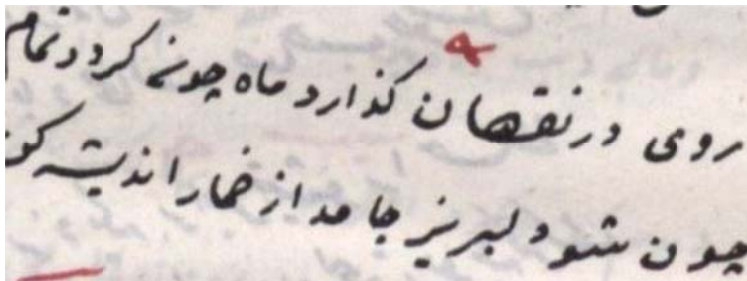 روی در نقصان گذارد ماه چون گردد تمام
چون شود لبریز جامت از خمار اندیشه کن